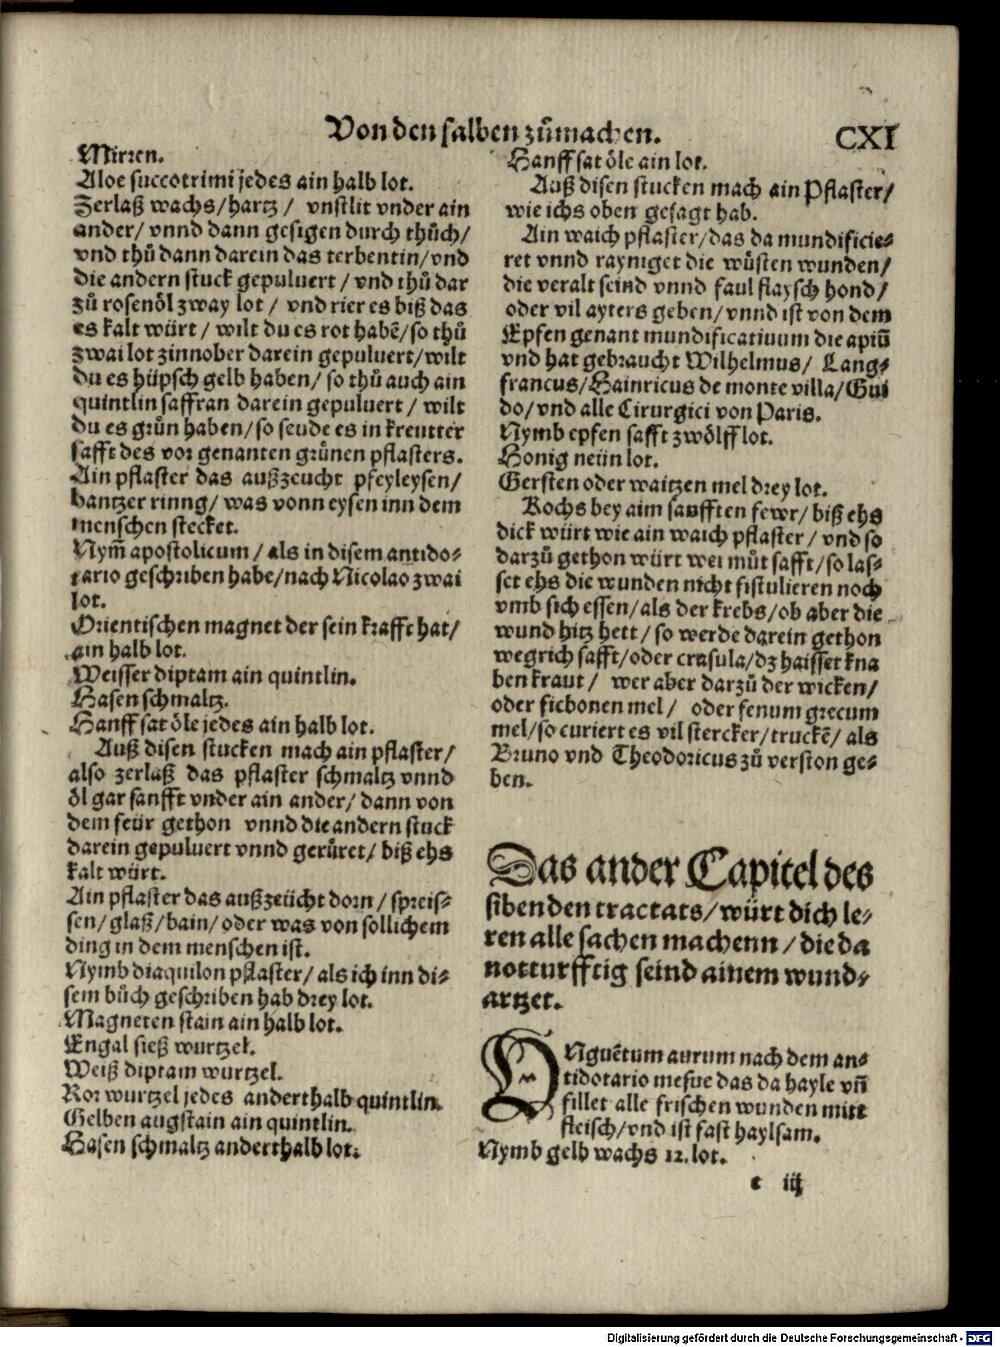 Von den salben zůmachen.
CXI
Mirren.
Aloe succotrimi jedes ain halb lot.
Zerlaß wachs/hartz / vnstlit vnder ain
ander/ vnnd dann gesigen durch thůch/
vnd thů dann darein das terbentin/vnd
die andern stuck gepuluert / vnd thů dar
zů rosenöl zway lot / vnd rier es biß das
es kalt würt / wilt du es rot habē/so thů
zwai lot zinnober darein gepuluert/wilt
du es hüpsch gelb haben/ so thů auch ain
quintlin saffran darein gepuluert / wilt
du es grůn haben/so seude es in kreutter
safft des vor genanten grůnen pflasters.
Ain pflaster das außzeucht pfeyleysen/
bantzer rinng/ was vonn eysen inn dem
menschen stecket.
Nym̄ apostolicum / als in disem antido-
tario geschriben habe/nach Nicolao zwai
lot.
Orientischen magnet der sein krafft hat/
ain halb lot.
Weisser diptam ain quintlin.
Hasen schmaltz.
Hanff sat öle jedes ain halb lot.
Auß disen stucken mach ain pflaster/
also zerlaß das pflaster schmaltz vnnd
öl gar sanfft vnder ain ander/ dann von
dem feür gethon vnnd die andern stuck
darein gepuluert vnnd gerůret/ biß ehs
kalt würt.
Ain pflaster das außzeücht dorn/ spreis-
sen/glaß/bain/oder was von sollichem
ding in dem menschen ist.
Nymb diaquilon pflaster/ als ich inn di-
sem bůch geschriben hab drey lot.
Magneten stain ain halb lot.
Engal sieß wurtzel.
Weiß diptam wurtzel.
Ror wurtzel jedes anderthalb quintlin.
Gelben augstain ain quintlin.
Hasen schmaltz anderthalb lot.
Hanff sat öle ain lot.
Auß disen stucken mach ain Pflaster/
wie ichs oben gesagt hab.
Ain waich pflaster/das da mundificie-
ret vnnd rayniget die wůsten wunden/
die veralt seind vnnd faul flaysch hond/
oder vil ayters geben/vnnd ist von dem
Epfen genant mundificatiuum die apiū
vnd hat gebraucht Wilhelmus/ Lang-
francus/Hainricus de monte villa/Gui
do/vnd alle Cirurgici von Paris.
Nymb epfen safft zwölff lot.
Honig neün lot.
Gersten oder waitzen mel drey lot.
Kochs bey aim saufften fewr/ biß ehs
dick würt wie ain waich pflaster/ vnd so
darzů gethon würt wer můt safft/so las-
set ehs die wunden nicht fistulieren noch
vmb sich essen/als der krebs/ob aber die
wund hitz hett/ so werde darein gethon
wegrich safft/oder crasula/dz haisset kna
ben kraut / wer aber darzů der wicken/
oder ficbonen mel / oder fenum grecum
mel/so curiert es vil stercker/truckē/ als
Bruno vnd Theodoricus zů verston ge-
ben.
Das ander Capitel des
sibenden tractats/würt dich le-
ren alle sachen machenn/die da
notturfftig seind ainem wund-
artzet.
VNguētum aurum nach dem an-
tidotario mesue das da hayle vn̄
fillet alle frischen wunden mitt
fleisch/vnd ist fast haylsam.
Nymb gelb wachs 12. lot.
c iij
Digitalisierung gefördert durch die Deutsche Forschungsgemeinschaft - DFG